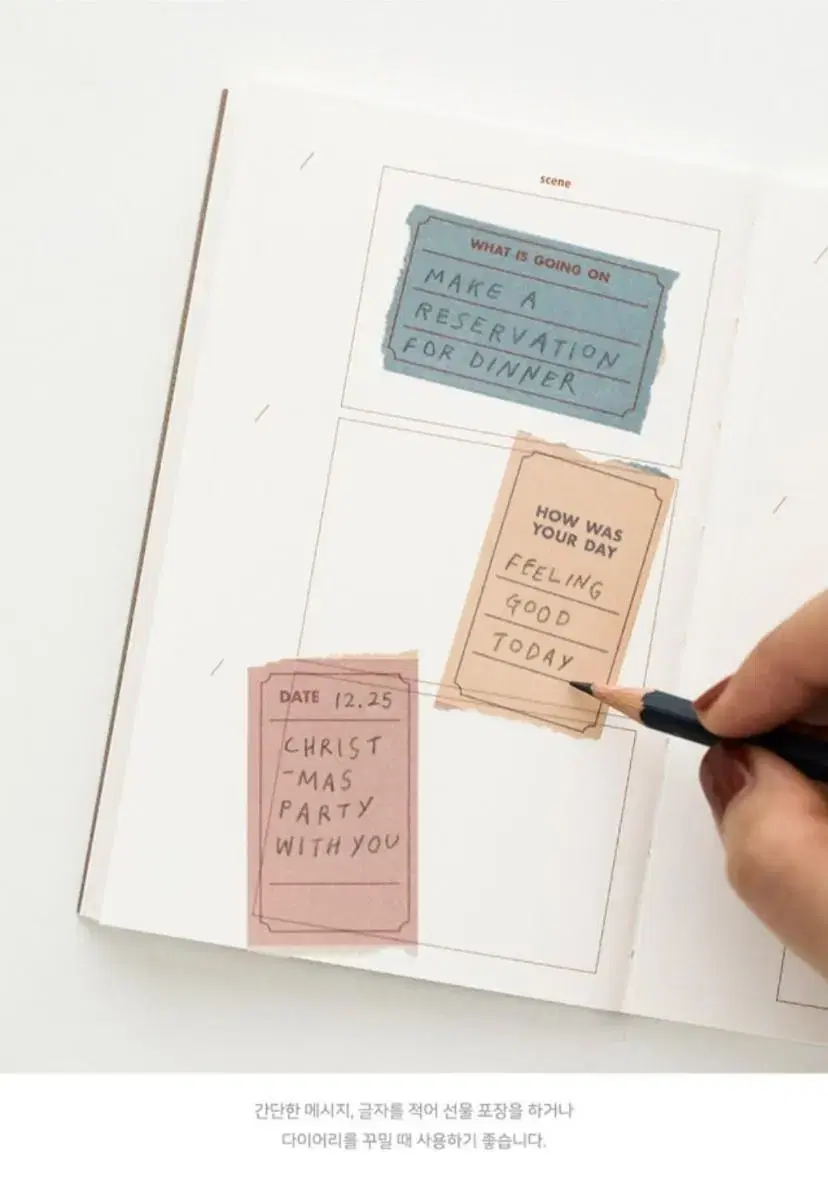 scene
WHAT IS GOING ON
MAKE A
RESERVATION
FOR DINNER
HOW WAS
YOUR DAY
FEELING
GOOD
TODAY
DATE 12.25
CHRIST
-MAS
PARTY
WITH YOU
간단한 메시지, 글자를 적어 선물 포장을 하거나
다이어리를 꾸밀 때 사용하기 좋습니다.